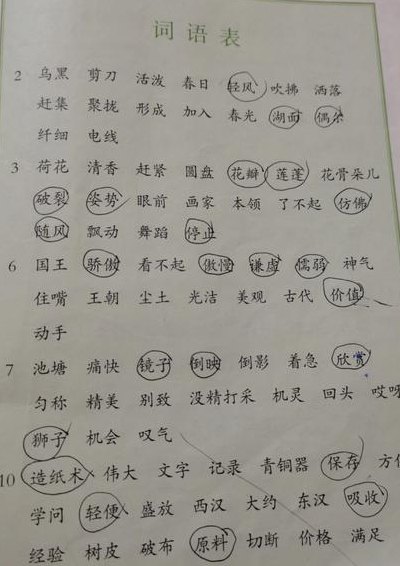 词语表
2 乌黑 剪刀 活泼 春日 轻风 吹拂 洒落
赶集 聚拢 形成 加入 春光 湖面 偶尔
纤细 电线
3 荷花 清香 赶紧 圆盘 花瓣 莲蓬 花骨朵儿
破裂 姿势 眼前 画家 本领 了不起 仿佛
随风 飘动 舞蹈 停止
6 国王 骄傲 看不起 傲慢 谦虚 懦弱 神气
住嘴 王朝 尘土 光洁 美观 古代 价值
动手
7 池塘 痛快 镜子 倒映 倒影 着急 欣赏
匀称 精美 别致 没精打采 机灵 回头 哎呀
狮子 机会 叹气
10 造纸术 伟大 文字 记录 青铜器 保存 方
学问 轻便 盛放 西汉 大约 东汉 吸收
经验 树皮 破布 原料 切断 价格 满足